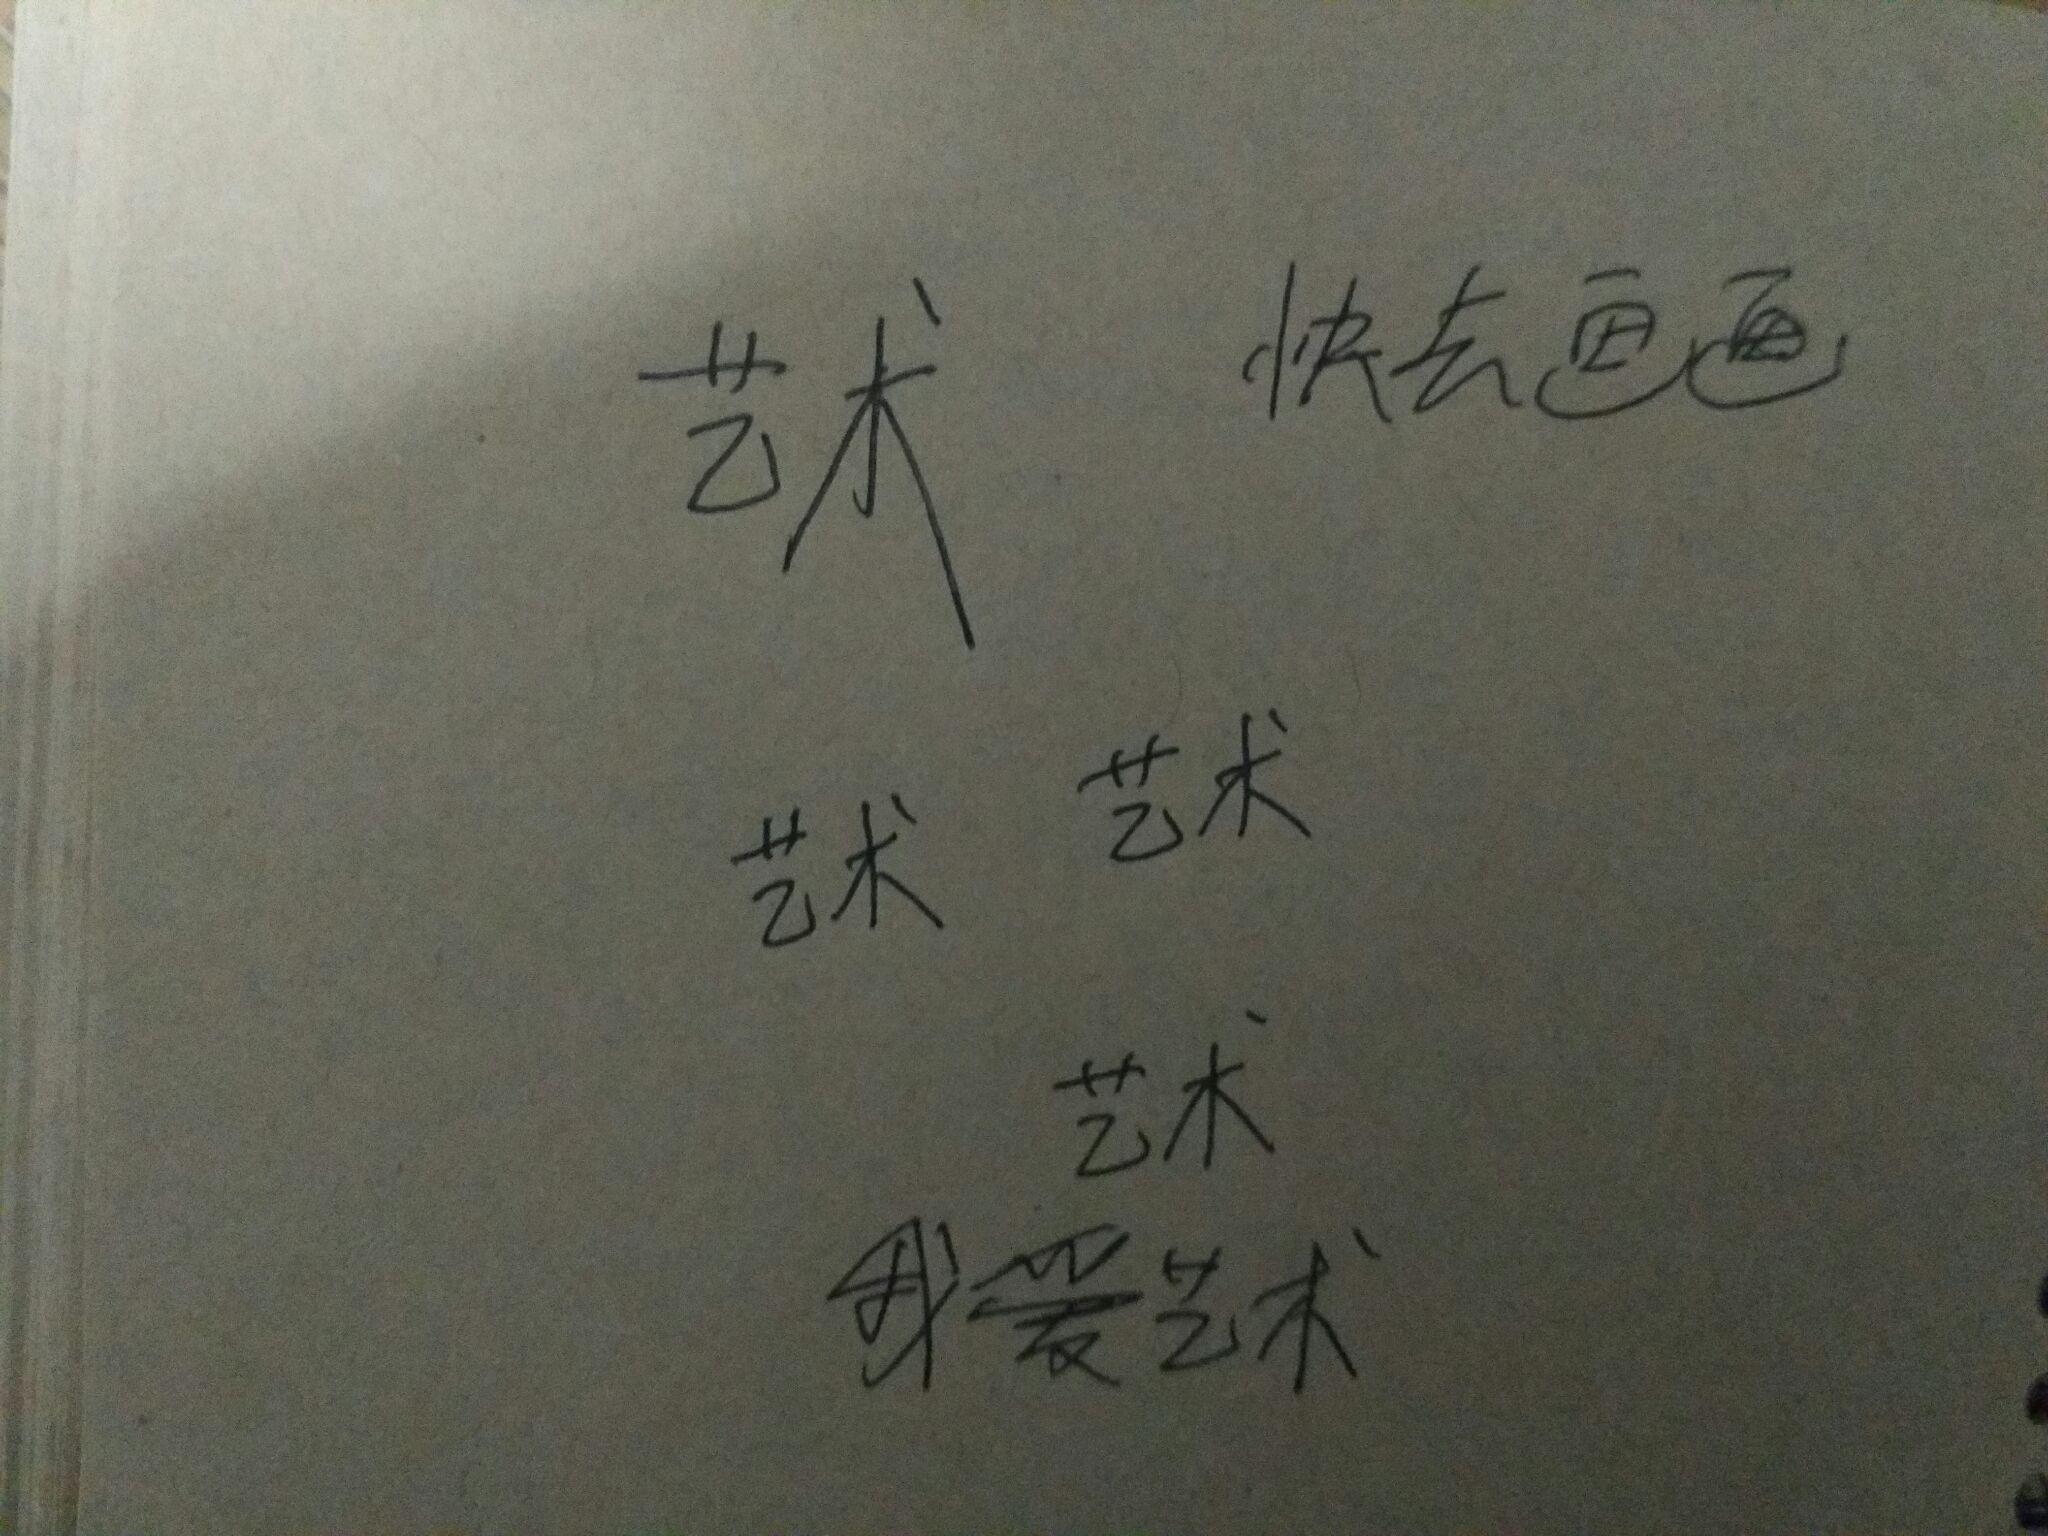 艺术 快去画画
艺术 艺术
艺术
我爱艺术